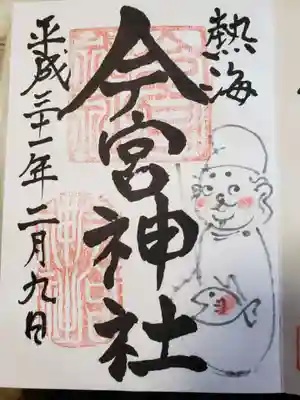 熱海
今宮神社
平成三十一年二月九日